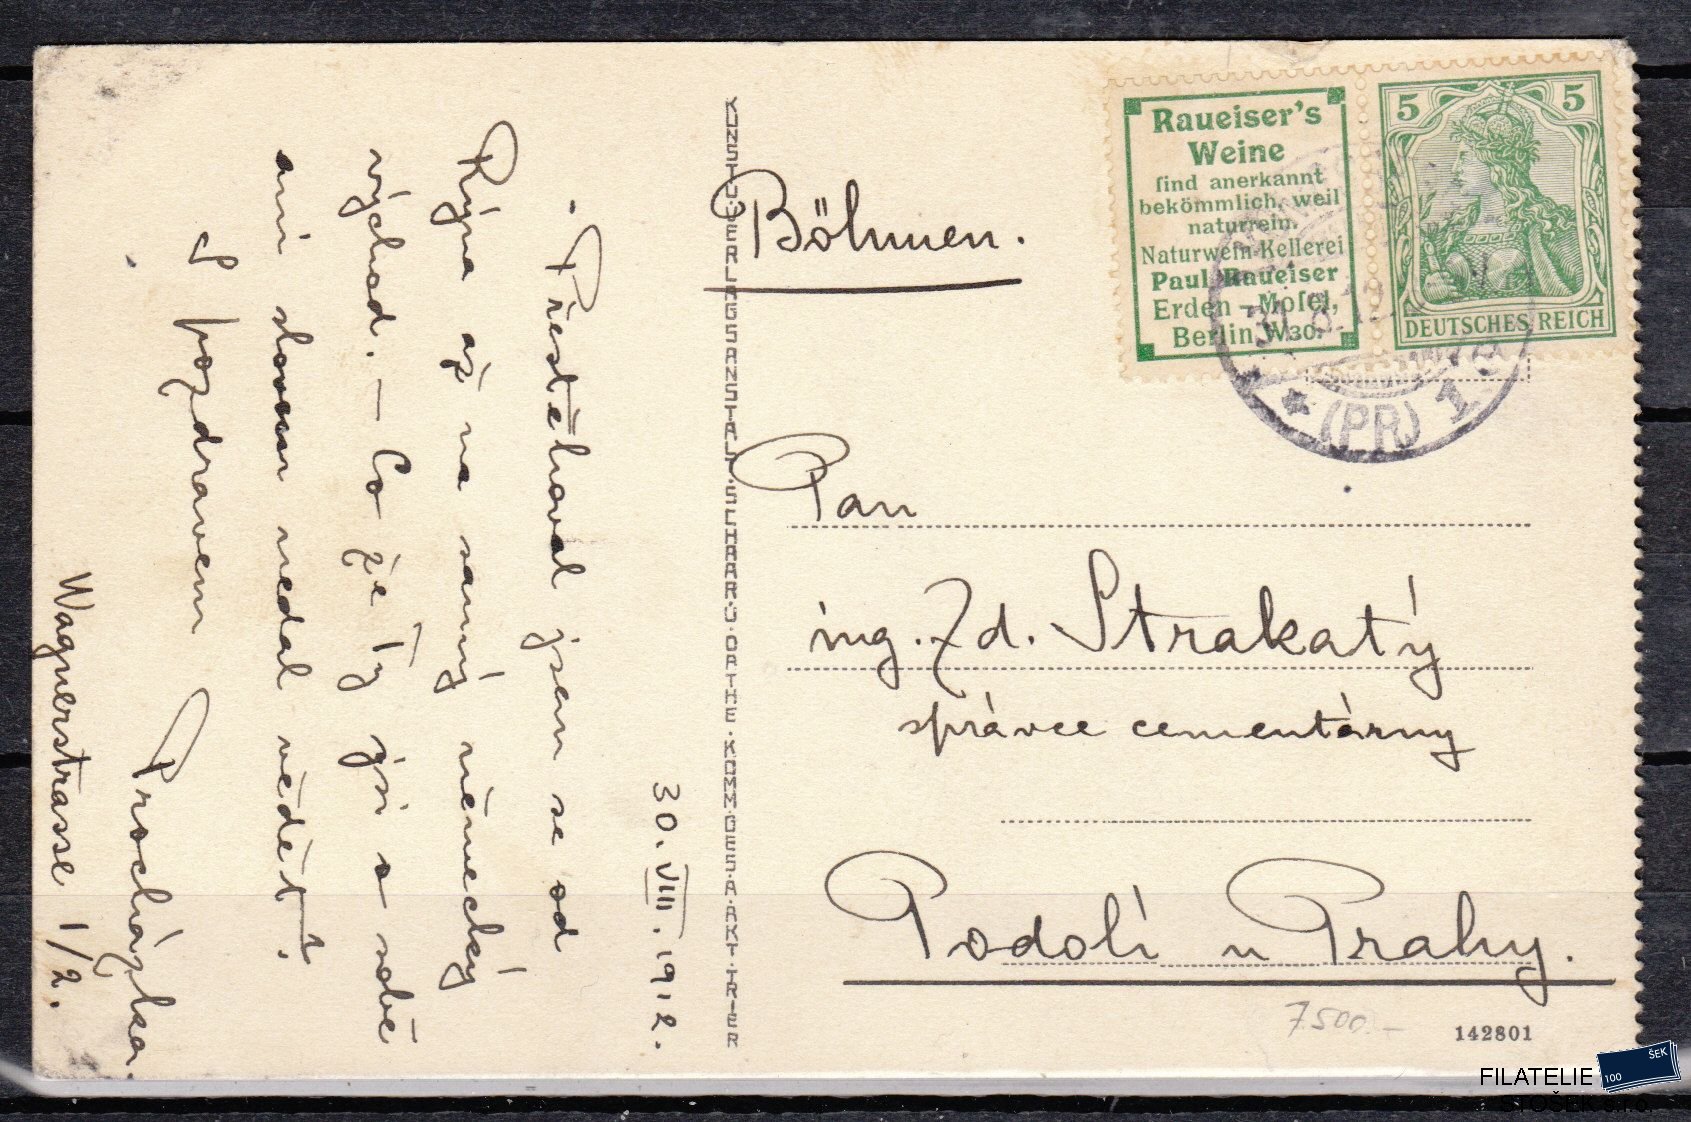 30. VIII. 1912.
Přestěhoval jsem se od
Rýna až na samý německý
východ. – Co že Ty jsi o sobě
ani slovem nedal vědět?
S pozdravem
Procházka.
Wagnerstrasse 1/2.
KUNST- U. VERLAGSANSTALT SCHAAR U. DATHE KOMM. GES. A. AKT. TRIER
Böhmen.
Raueiser's
Weine
ſind anerkannt
bekömmlich, weil
naturrein.
Naturwein-Kellerei
Paul Raueiser
Erden – Moſel,
Berlin W30.
5 5
DEUTSCHES REICH
* (PR) 1
Pan
ing. Zd. Strakatý
správce cementárny
Podolí u Prahy.
7500.-
142801
FILATELIE
100 ŠEK